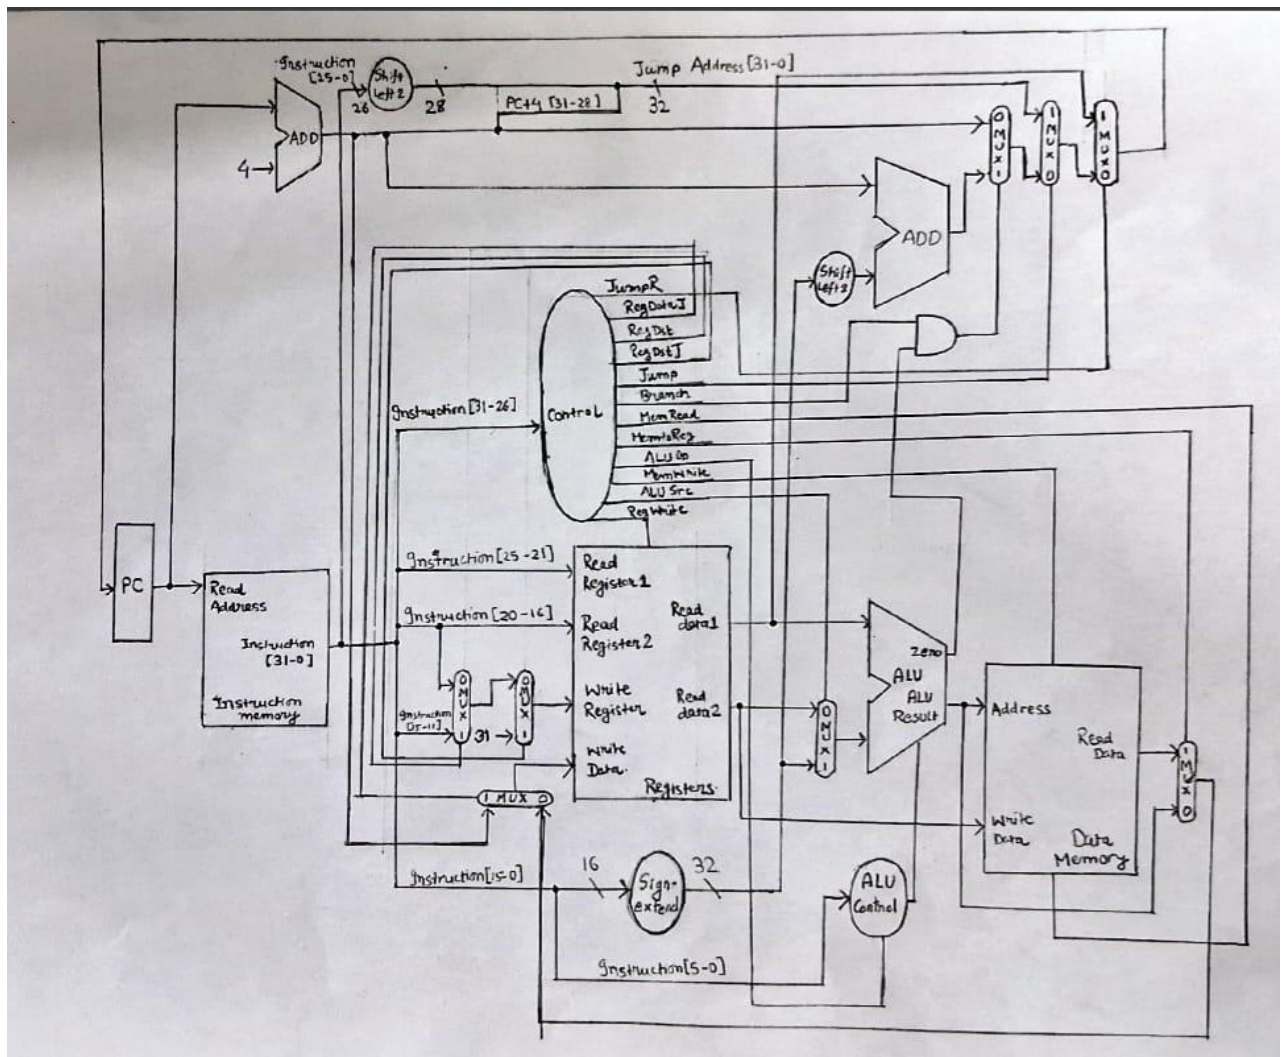 Instruction
[25-0]
Shift
Left 2
26
28
Jump Address [31-0]
32
PC+4 [31-28]
ADD
4
0
M
U
X
1
1
M
U
X
0
1
M
U
X
0
ADD
Shift
Left 2
Control
JumpR
RegDataJ
RegDst
RegDstJ
Jump
Branch
MemRead
MemtoReg
ALU Op
MemWrite
ALU Src
RegWrite
Instruction [31-26]
PC
Read
Address
Instruction
[31-0]
Instruction
memory
Instruction [25-21]
Instruction [20-16]
Instruction
0
M
U
X
1
31
0
M
U
X
1
Read
Register1
Read
Register2
Write
Register
Write
Data
Read
data1
Read
data2
Registers
1 MUX 0
0
M
U
X
1
Zero
ALU
ALU
Result
Address
Write
Data
Read
Data
Data
Memory
1
M
U
X
0
Instruction[15-0]
16
Sign-
extend
32
ALU
Control
Instruction[5-0]